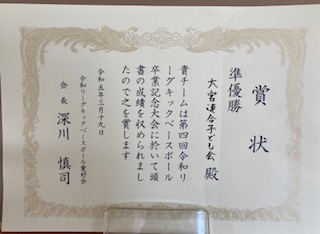 賞状
準優勝
大宮連合子ども会 殿
貴チームは第四回令和リ
ーグキックベースボール
卒業記念大会に於いて頭
書の成績を収められまし
たので之を賞します
令和五年三月十九日
令和リーグキックベースボール愛好会
会長 深川 慎司